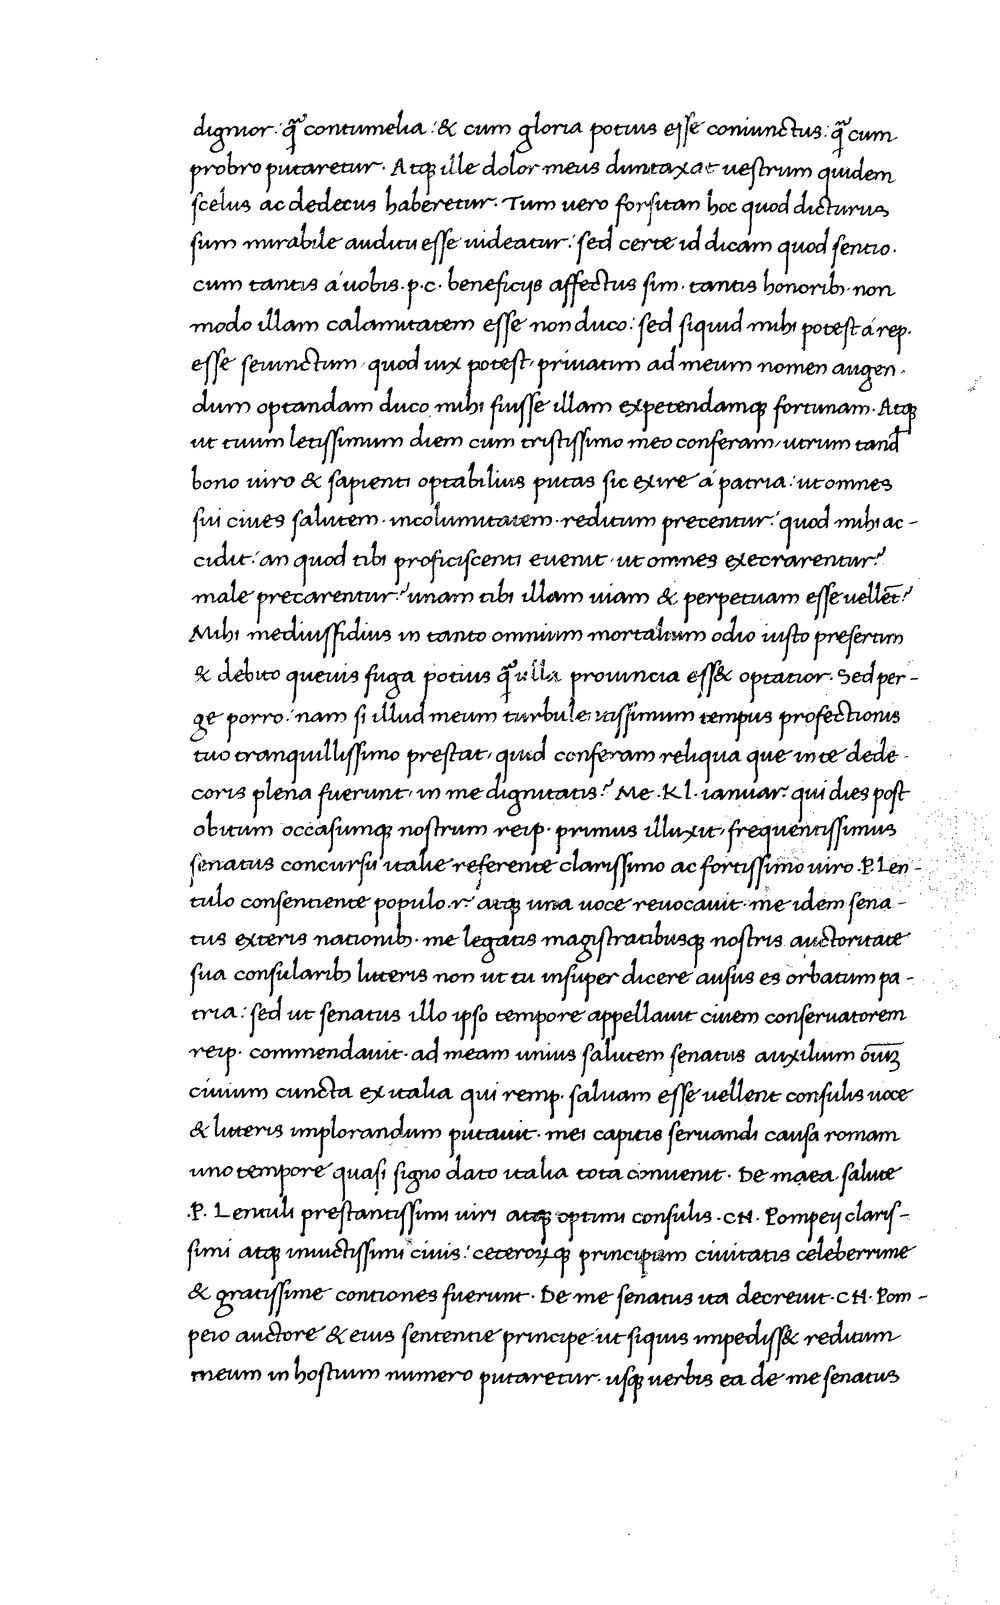 dignior: quã contumelia: & cum gloria potius esse coniunctus: quã cum
probro putaretur. Atq; ille dolor meus duntaxat uestrum quidem
scelus ac dedecus haberetur. Tum uero forsitan hoc quod dicturus
sum mirabile auditu esse uideatur: sed certe id dicam quod sentio.
cum tantis á uobis .p.c. beneficijs affectus sim. tantis honorib; non
modo illam calamitatem esse non duco: sed siquid mihi potest á rep.
esse seiunctum. quod uix potest, priuatim ad meum nomen augen-
dum optandam duco mihi fuisse illam expetendamq; fortunam. Atq;
ut tuum letissimum diem cum tristissimo meo conferam, utrum tand
bono uiro & sapienti optabilius putas sic exire á patria: ut omnes
sui ciues salutem. incolumitatem. reditum precentur: quod mihi ac-
cidit: an quod tibi proficiscenti euenit. ut omnes execrarentur?
male precarentur? unam tibi illam uiam & perpetuam esse uellet̄?
Mihi mediussidius in tanto omnium mortalium odio iusto presertim
& debito queuis fuga potius quã ulla prouincia ess& optatior. Sed per-
ge porro: nam si illud meum turbulentissimum tempus profectionis
tuo tranquillissimo prestat, quid conferam reliqua que in te dede-
coris plena fuerunt, in me dignitatis? Me .Kl. ianuar. qui dies post
obitum occasumq; nostrum reip. primus illuxit, frequentissimus
senatus concursu italie referente clarissimo ac fortissimo uiro .P. Len-
tulo consentiente populo .r. atq; una uoce reuocauit. me idem sena-
tus exteris nationib; me legatis magistratibusq; nostris auctoritate
sua consularib; litteris non ut tu insuper dicere ausus es orbatum pa-
tria: sed ut senatus illo ipso tempore appellauit ciuem conseruatorem
reip. commendauit. ad meam unius salutem senatus auxilium oĩuz
ciuium cuncta ex italia qui remp. saluam esse uellent consulis uoce
& litteris implorandum putauit. mei capitis seruandi causa romam
uno tempore quasi signo dato italia tota conuenit. De maea salute
.P. Lentuli prestantissimi uiri atq; optimi consulis .CN. Pompeij claris-
simi atq; inuictissimi ciuis: ceteroꝝq; principum ciuitatis celeberrime
& gratissime contiones fuerunt. De me senatus ita decreuit .CN. Pom-
peio auctore & eius sententie principe: ut siquis impediss& reditum
meum in hostium numero putaretur. usq; uerbis ea de me senatus